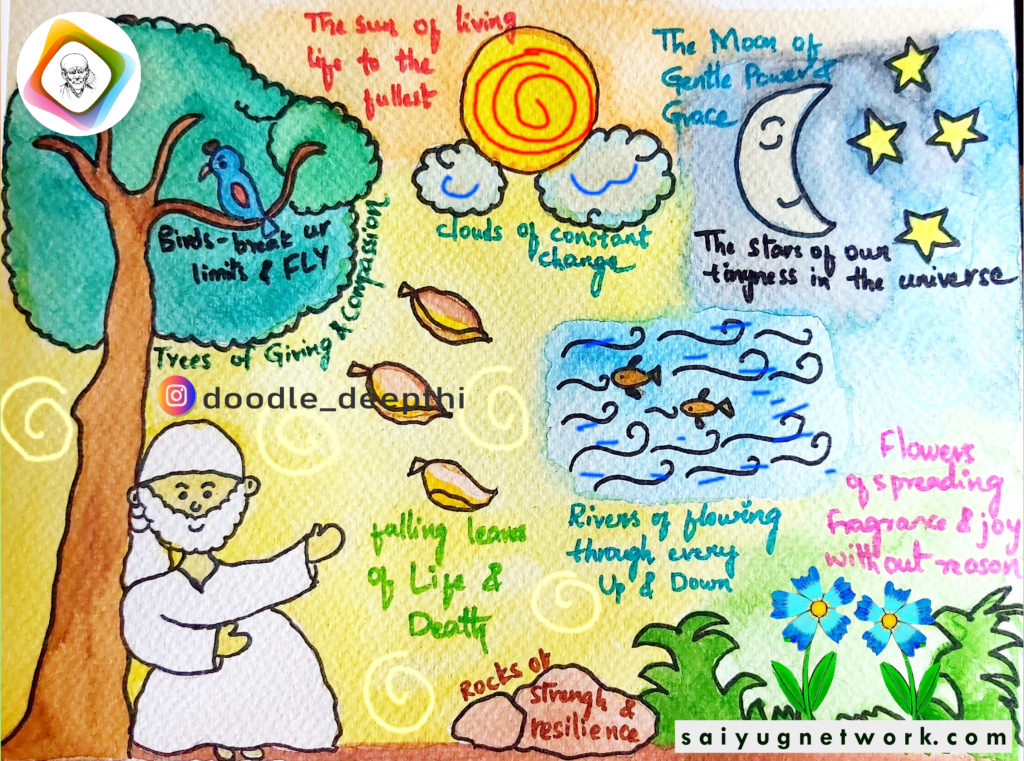 The sun of living
life to the
fullest
The Moon of
Gentle Power &
Grace
Birds - break ur
limits & FLY
Trees of Giving & Compassion
clouds of constant
change
The stars of our
tinyness in the universe
doodle_deepthi
falling leaves
of Life &
Death
Rivers of flowing
through every
Up & Down
Flowers
of spreading
Fragrance & joy
without reason
Rocks of
strengh &
resilience
saiyugnetwork.com